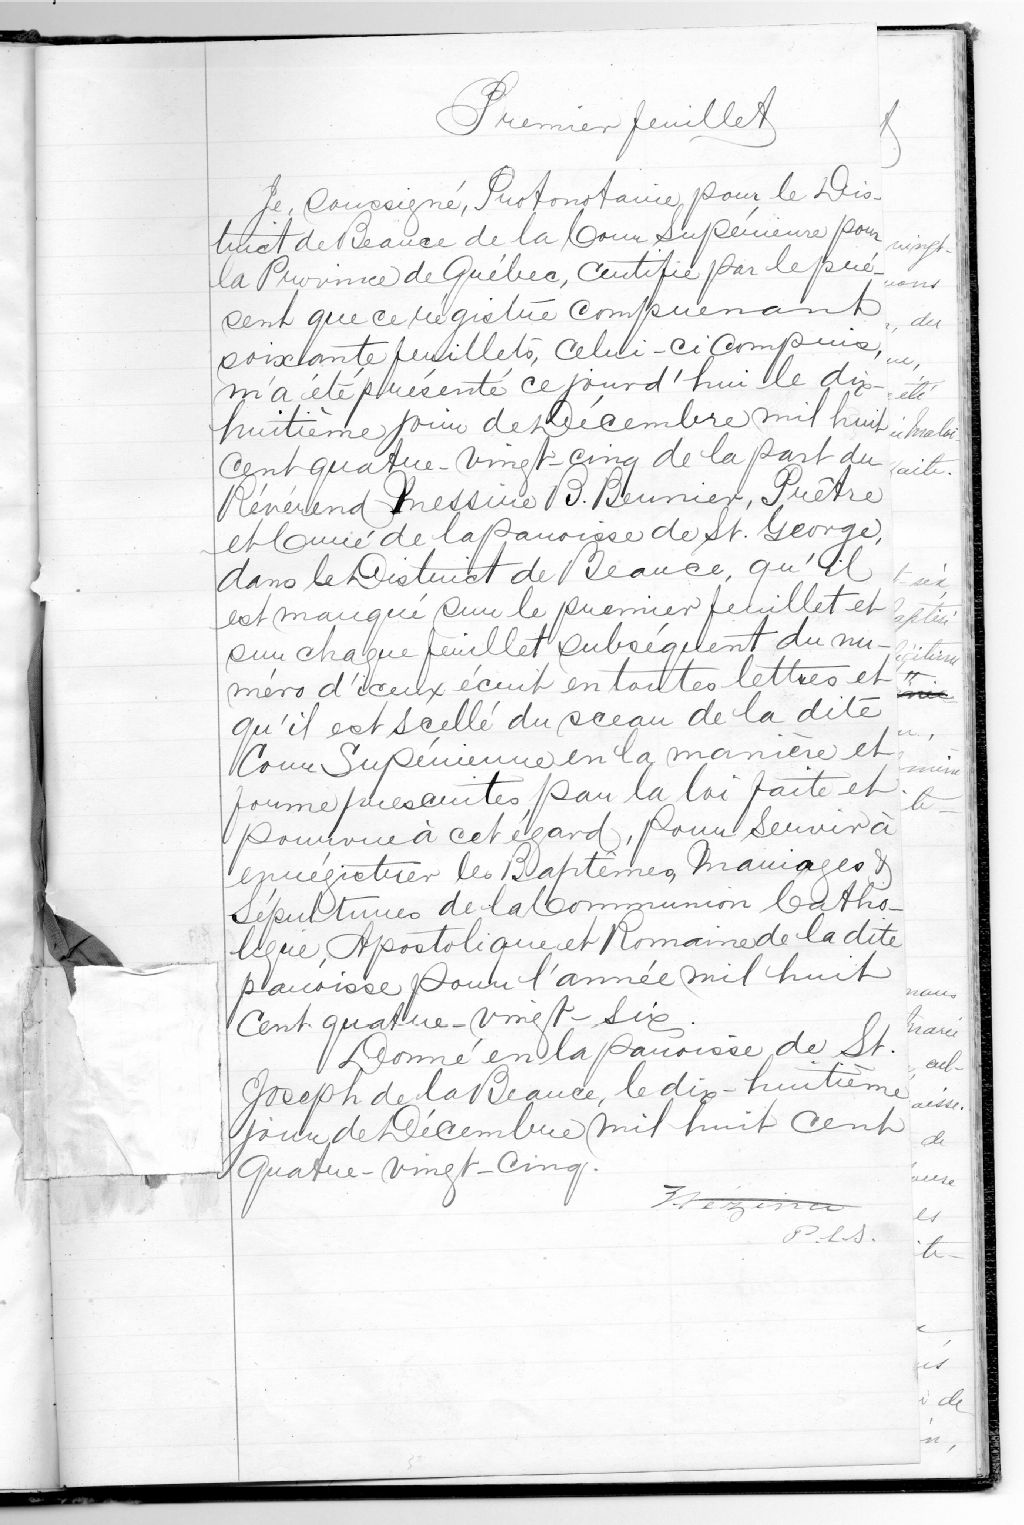 Premier feuillet
Je, soussigné, Protonotaire pour le Dis-
trict de Beauce de la Cour Supérieure pour
la Province de Québec, certifie par le pré-
sent que ce registre comprenant
soixante feuillets, celui-ci compris,
m'a été présenté ce jourd'hui le dix-
huitième jour de Décembre mil huit
cent quatre-vingt-cinq de la part du
Révérend Messire B. Bernier, Prêtre
et Curé de la paroisse de St. George,
dans le District de Beauce, qu'il
est marqué sur le premier feuillet et
sur chaque feuillet subséquent du nu-
méro d'iceux écrit en toutes lettres et
qu'il est scellé du sceau de la dite
Cour Supérieure en la manière et
forme prescrites par la loi faite et
pourvue à cet égard, pour servir à
enrégistrer les Baptêmes, Mariages &
Sépultures de la Communion Catho-
lique, Apostolique et Romaine de la dite
paroisse pour l'année mil huit
cent quatre-vingt-six.
Donné en la paroisse de St.
Joseph de la Beauce, le dix-huitième
jour de Décembre mil huit cent
quatre-vingt-cinq.
Vézina
P.C.S.
vingt-
du
été
de
de